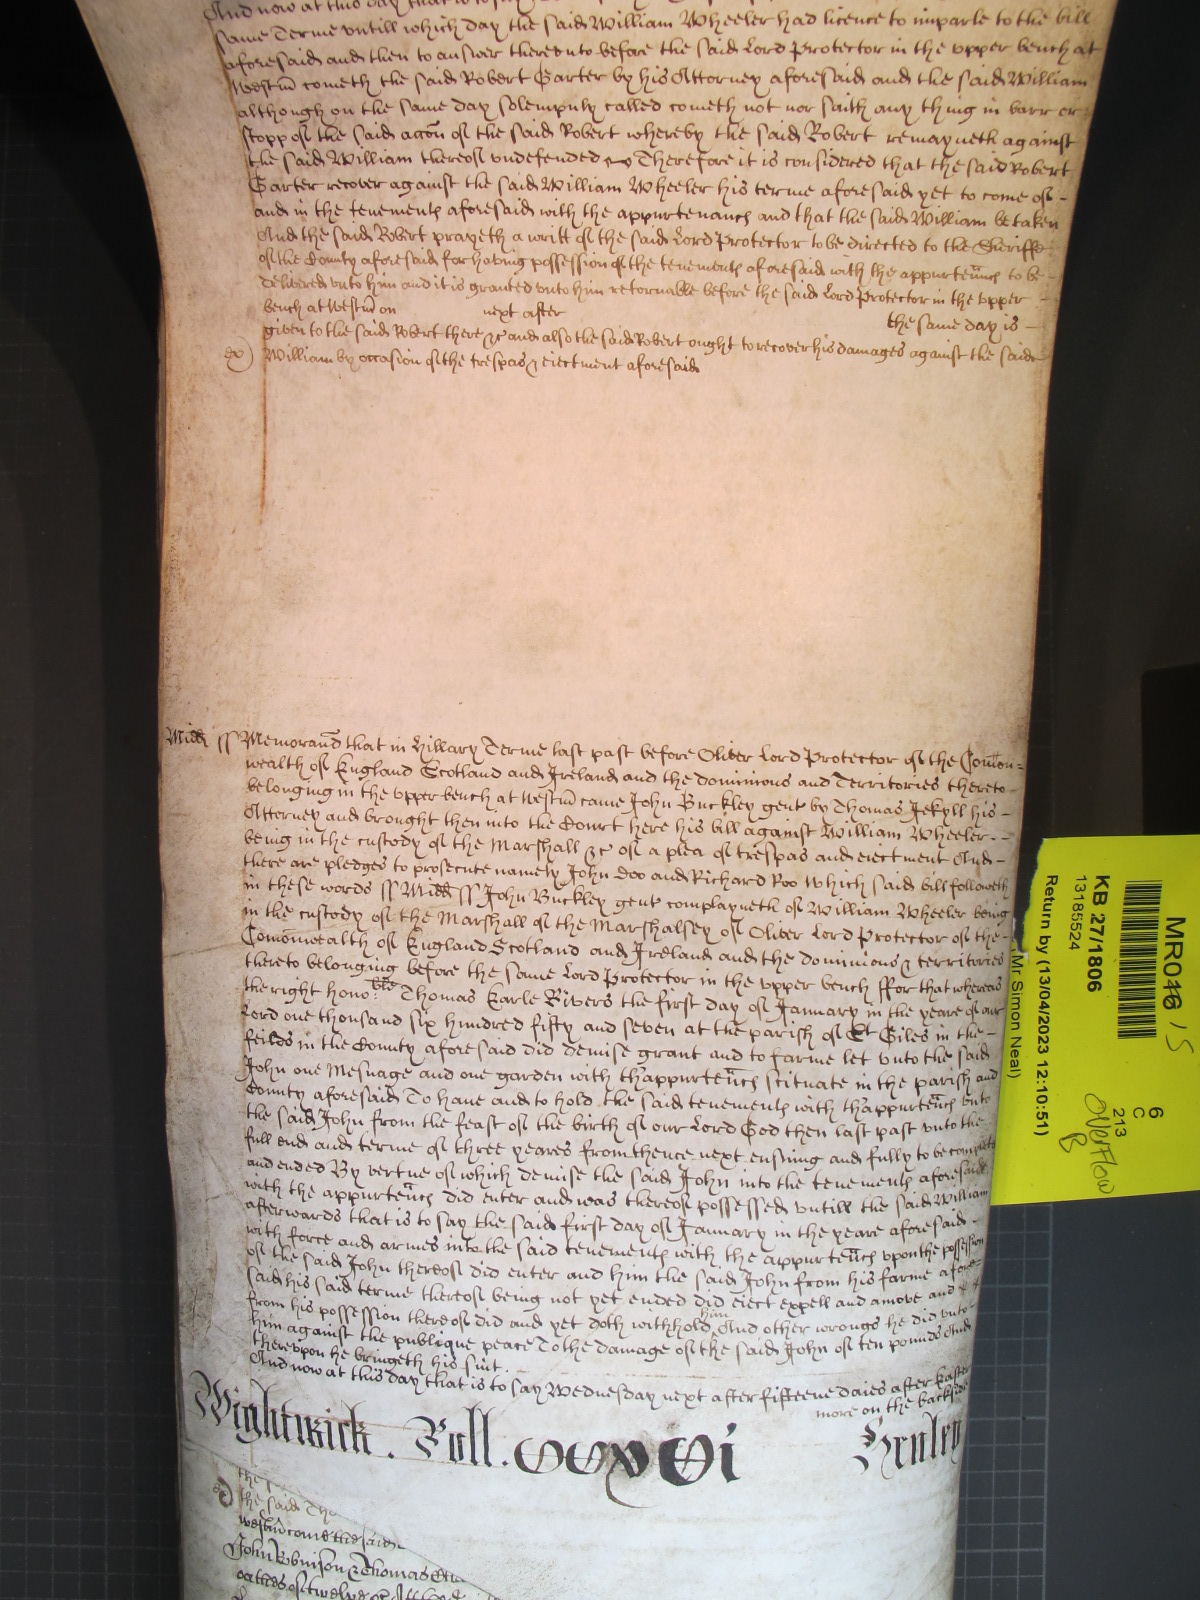 And now at this day that is to say
same Terme untill which day the said William Wheeler had licence to imparle to the bill
aforesaid and then to answer thereunto before the said Lord Protector in the upper bench at
Westm̄ cometh the said Robert Carter by his Attorney aforesaid and the said William
although on the same day solempnly called cometh not nor saith any thing in barr or
stopp of the said accōn of the said Robert whereby the said Robert remayneth against
the said William thereof undefended Therefore it is considered that the said Robert
Carter recover against the said William Wheeler his terme aforesaid yet to come of -
and in the tenements aforesaid with the appurtenancs and that the said William be taken
And the said Robert prayeth a writt of the said Lord Protector to be directed to the Sheriffe
of the County aforesaid for having possession of the tenements aforesaid with the appurteñncs to be -
delivered unto him and it is granted unto him retornable before the said Lord Protector in the upper
bench at Westm̄ on next after the same day is -
given to the said Robert there &c and also the said Robert ought to recover his damages against the said
William by occasion of the trespas & eiectment aforesaid
Midd ss Memorand̄ that in Hillary Terme last past before Oliver Lord Protector of the Com̄on-
wealth of England Scotland and Ireland and the dominions and Territories thereto
belonging in the upper bench at Westm̄ came John Buckley gent by Thomas Jekyll his -
Attorney and brought then into the Court here his bill against William Wheeler -
being in the custody of the Marshall &c of a plea of trespas and eiectment And -
there are pledges to prosecute namely John Doo and Richard Roo Which said bill followeth
in these words ss Midd ss John Buckley gent complayneth of William Wheeler being
in the custody of the Marshall of the Marshalsey of Oliver Lord Protector of the -
Com̄onwealth of England Scotland and Ireland and the dominions & territories
thereto belonging before the same Lord Protector in the upper bench ffor that whereas
the right hono:ble Thomas Earle Rivers the first day of January in the yeare of our
Lord one thousand six hundred fifty and seven at the parish of St Giles in the -
feilds in the County aforesaid did demise grant and to farme let unto the said
John one Mesuage and one garden with thappurteñncs scituate in the parish and
County aforesaid To have and to hold the said tenements with thappurteñncs unto
the said John from the feast of the birth of our Lord God then last past unto the
full end and terme of three yeares from thence next ensuing and fully to be compleat
and ended By vertue of which demise the said John into the tenements aforesaid
with the appurteñncs did enter and was thereof possessed untill the said William
afterwards that is to say the said first day of January in the yeare aforesaid -
with force and armes into the said tenements with the appurteñncs upon the possession
of the said John thereof did enter and him the said John from his farme afore-
said his said terme thereof being not yet ended did eject expell and amove and
from his possession thereof did and yet doth withhold him And other wrongs he did unto
him against the publique peace To the damage of the said John of ten pounds And
thereupon he bringeth his suit.
And now at this day that is to say Wednesday next after fifteene daies after Easter
more on the backside
Wightwick. Roll. CCxvii Henley
the said Tho
westm̄ come the said
John Robinson & Thomas
MR046 / 5
KB 27/1806
13185524
Return by (13/04/2023 12:10:51)
(Mr Simon Neal)
6
C
213
overflow
B